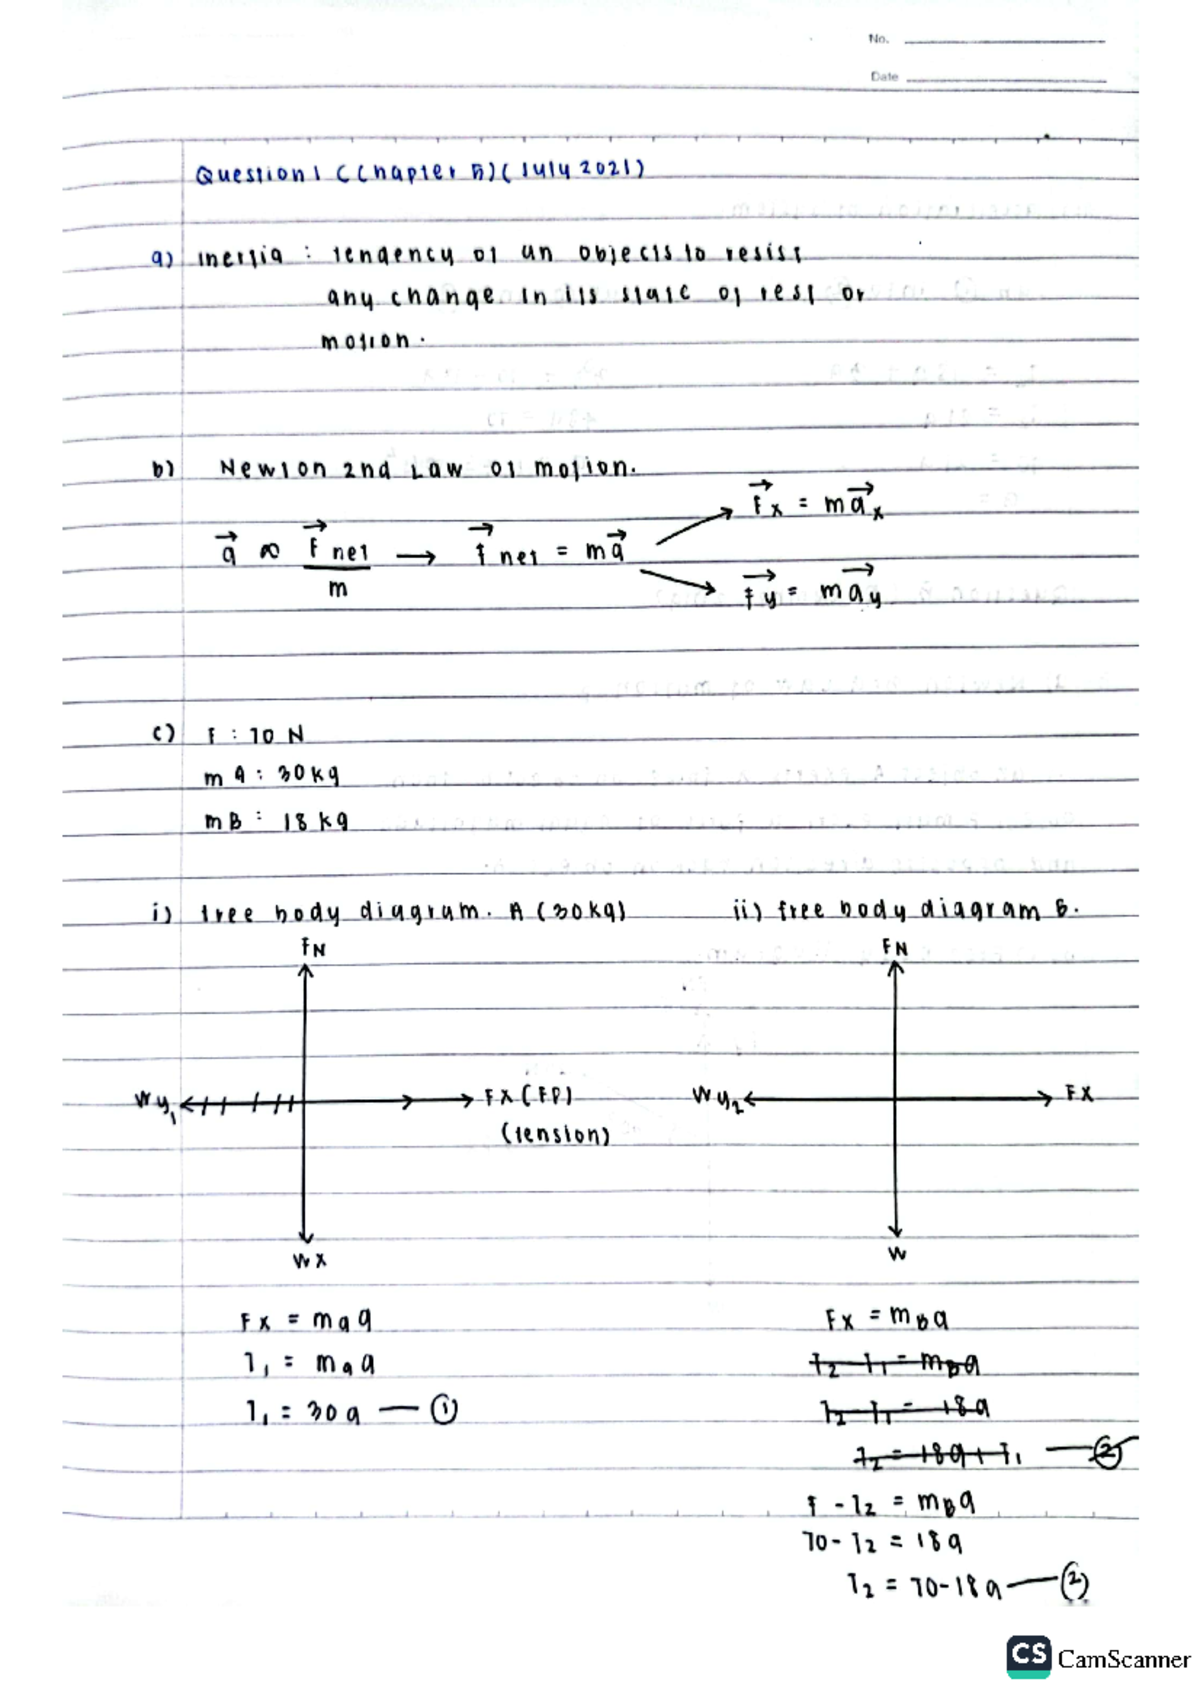 No.
Date
Question 1 (Chapter 5) (July 2021)
a) inertia : tendency of an objects to resist
any change in its state of rest or
motion.
b) Newton 2nd Law of motion.
a ∝ Fnet / m → Fnet = ma
Fx = max
Fy = may
c) F : 70 N
mA : 30kg
mB : 18 kg
i) free body diagram. A (30kg)
FN
Wy1
Fx (FP)
(tension)
Wx
Fx = maa
T1 = maa
T1 = 30a — ①
ii) free body diagram B.
FN
Wy2
Fx
W
Fx = mBa
T2 - T1 = mBa
T2 - T1 = 18a
T2 = 18a + T1 — ②
F - T2 = mBa
70 - T2 = 18a
T2 = 70 - 18a — ②
CS CamScanner